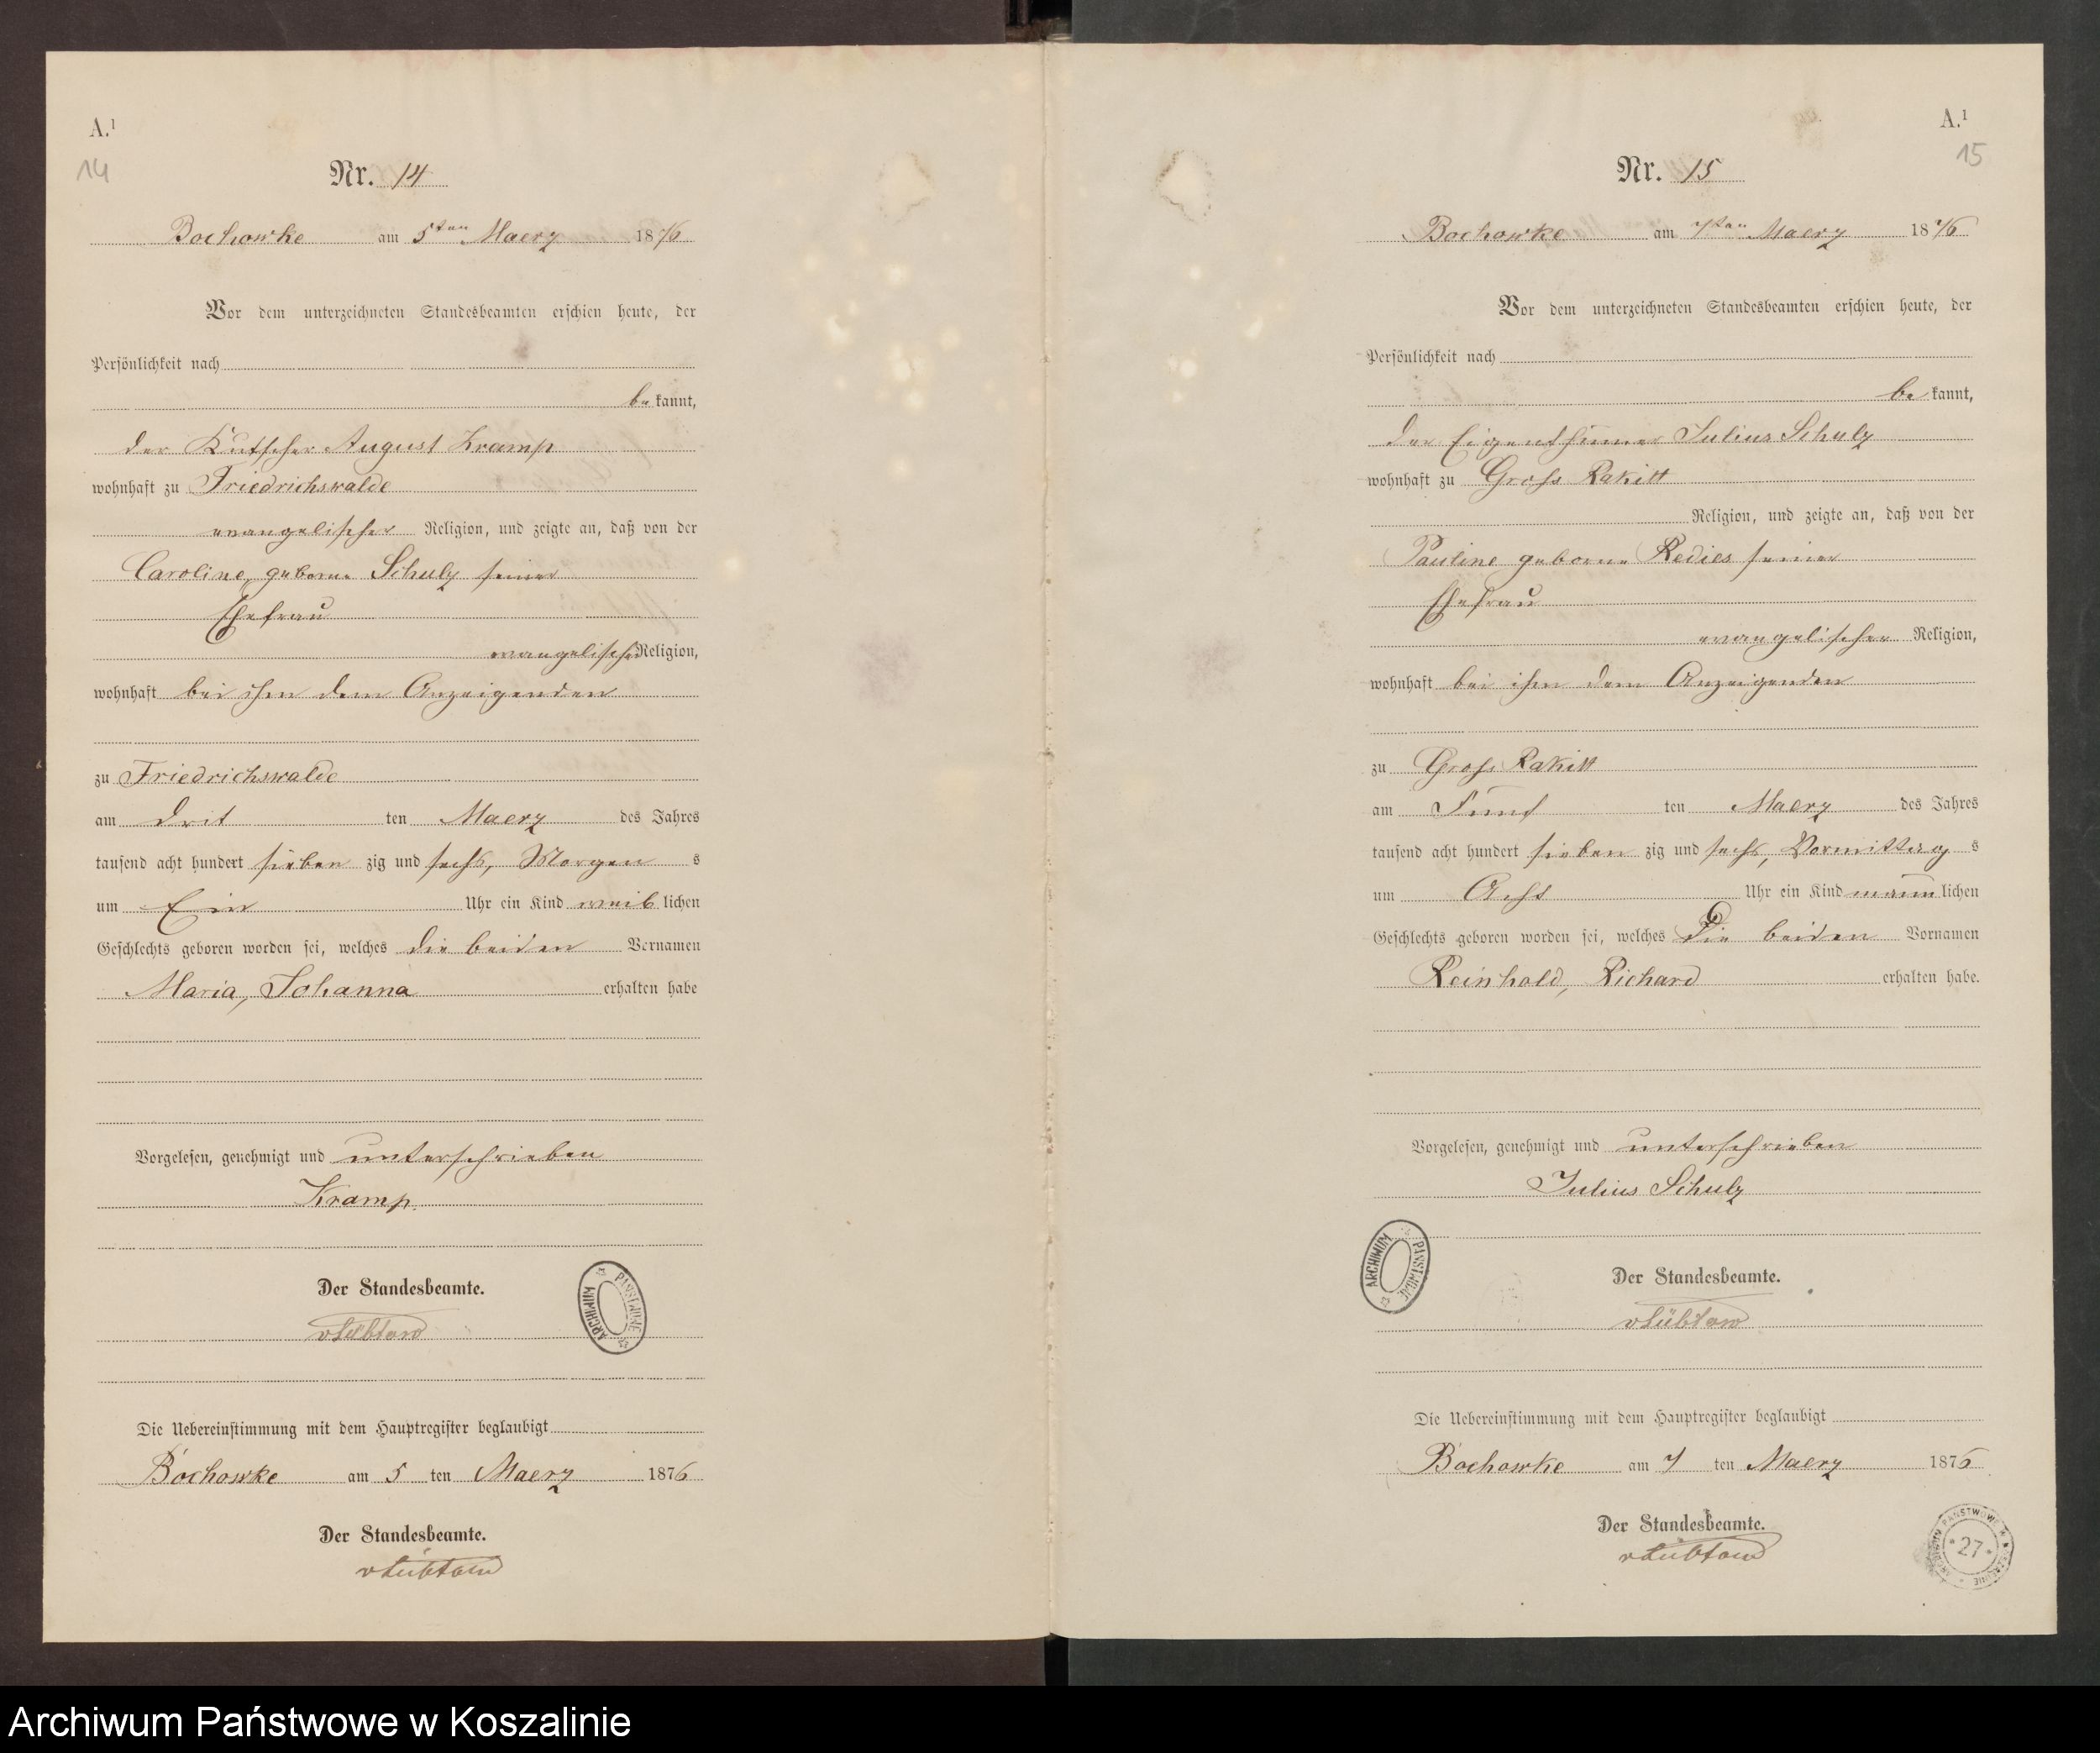 A.¹
14
Nr. 14
Bochowke am 5ten Maerz 1876
Vor dem unterzeichneten Standesbeamten erschien heute, der
Persönlichkeit nach
bekannt,
der Kutscher August Kramp
wohnhaft zu Friedrichswalde
evangelischer Religion, und zeigte an, daß von der
Caroline, geborne Schulz seiner
Ehefrau
evangelischer Religion,
wohnhaft bei ihm dem Anzeigenden
zu Friedrichswalde
am drit ten Maerz des Jahres
tausend acht hundert sieben zig und sechs, Morgen s
um Ein Uhr ein Kind weiblichen
Geschlechts geboren worden sei, welches die beiden Vornamen
Maria, Johanna erhalten habe
Vorgelesen, genehmigt und unterschrieben
Kramp.
Der Standesbeamte.
vLübtow
ARCHIWUM PAŃSTWOWE
Die Uebereinstimmung mit dem Hauptregister beglaubigt
Bochowke am 5 ten Maerz 1876
Der Standesbeamte.
vLübtow
A.¹
15
Nr. 15
Bochowke am 7ten Maerz 1876
Vor dem unterzeichneten Standesbeamten erschien heute, der
Persönlichkeit nach
bekannt,
der Eigenthümer Julius Schulz
wohnhaft zu Gross Rakitt
Religion, und zeigte an, daß von der
Pauline geborne Redies seiner
Ehefrau
evangelischer Religion,
wohnhaft bei ihm dem Anzeigenden
zu Gross Rakitt
am Fünf ten Maerz des Jahres
tausend acht hundert sieben zig und sechs, Vormittag s
um Acht Uhr ein Kind männlichen
Geschlechts geboren worden sei, welches die beiden Vornamen
Reinhold, Richard erhalten habe.
Vorgelesen, genehmigt und unterschrieben
Julius Schulz
ARCHIWUM PAŃSTWOWE
Der Standesbeamte.
vLübtow
Die Uebereinstimmung mit dem Hauptregister beglaubigt
Bochowke am 7 ten Maerz 1876
Der Standesbeamte.
vLübtow
ARCHIWUM PAŃSTWOWE W
27
Archiwum Państwowe w Koszalinie